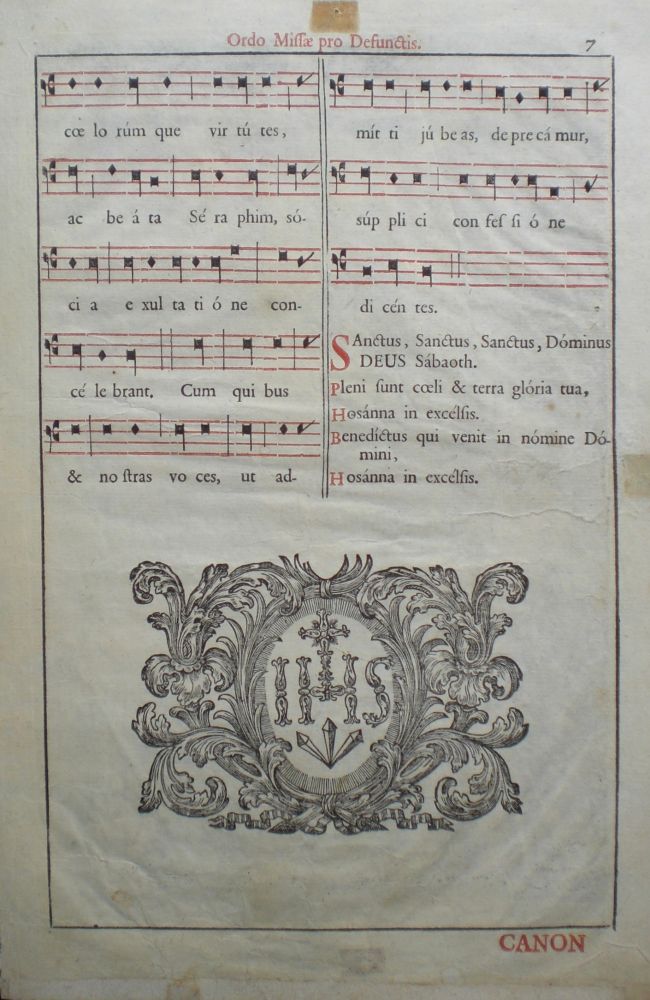 Ordo Miſſæ pro Defunctis. 7
cœ lo rúm que vir tú tes,
ac be á ta Sé ra phim, só-
ci a e xul ta ti ó ne con-
cé le brant. Cum qui bus
& no ſtras vo ces, ut ad-
mít ti jú be as, de pre cá mur,
súp pli ci con feſ ſi ó ne
di cén tes.
SAnctus, Sanctus, Sanctus, Dóminus
DEUS Sábaoth.
Pleni ſunt cœli & terra glória tua,
Hosánna in excélſis.
Benedíctus qui venit in nómine Dó-
mini,
Hosánna in excélſis.
IHS
CANON